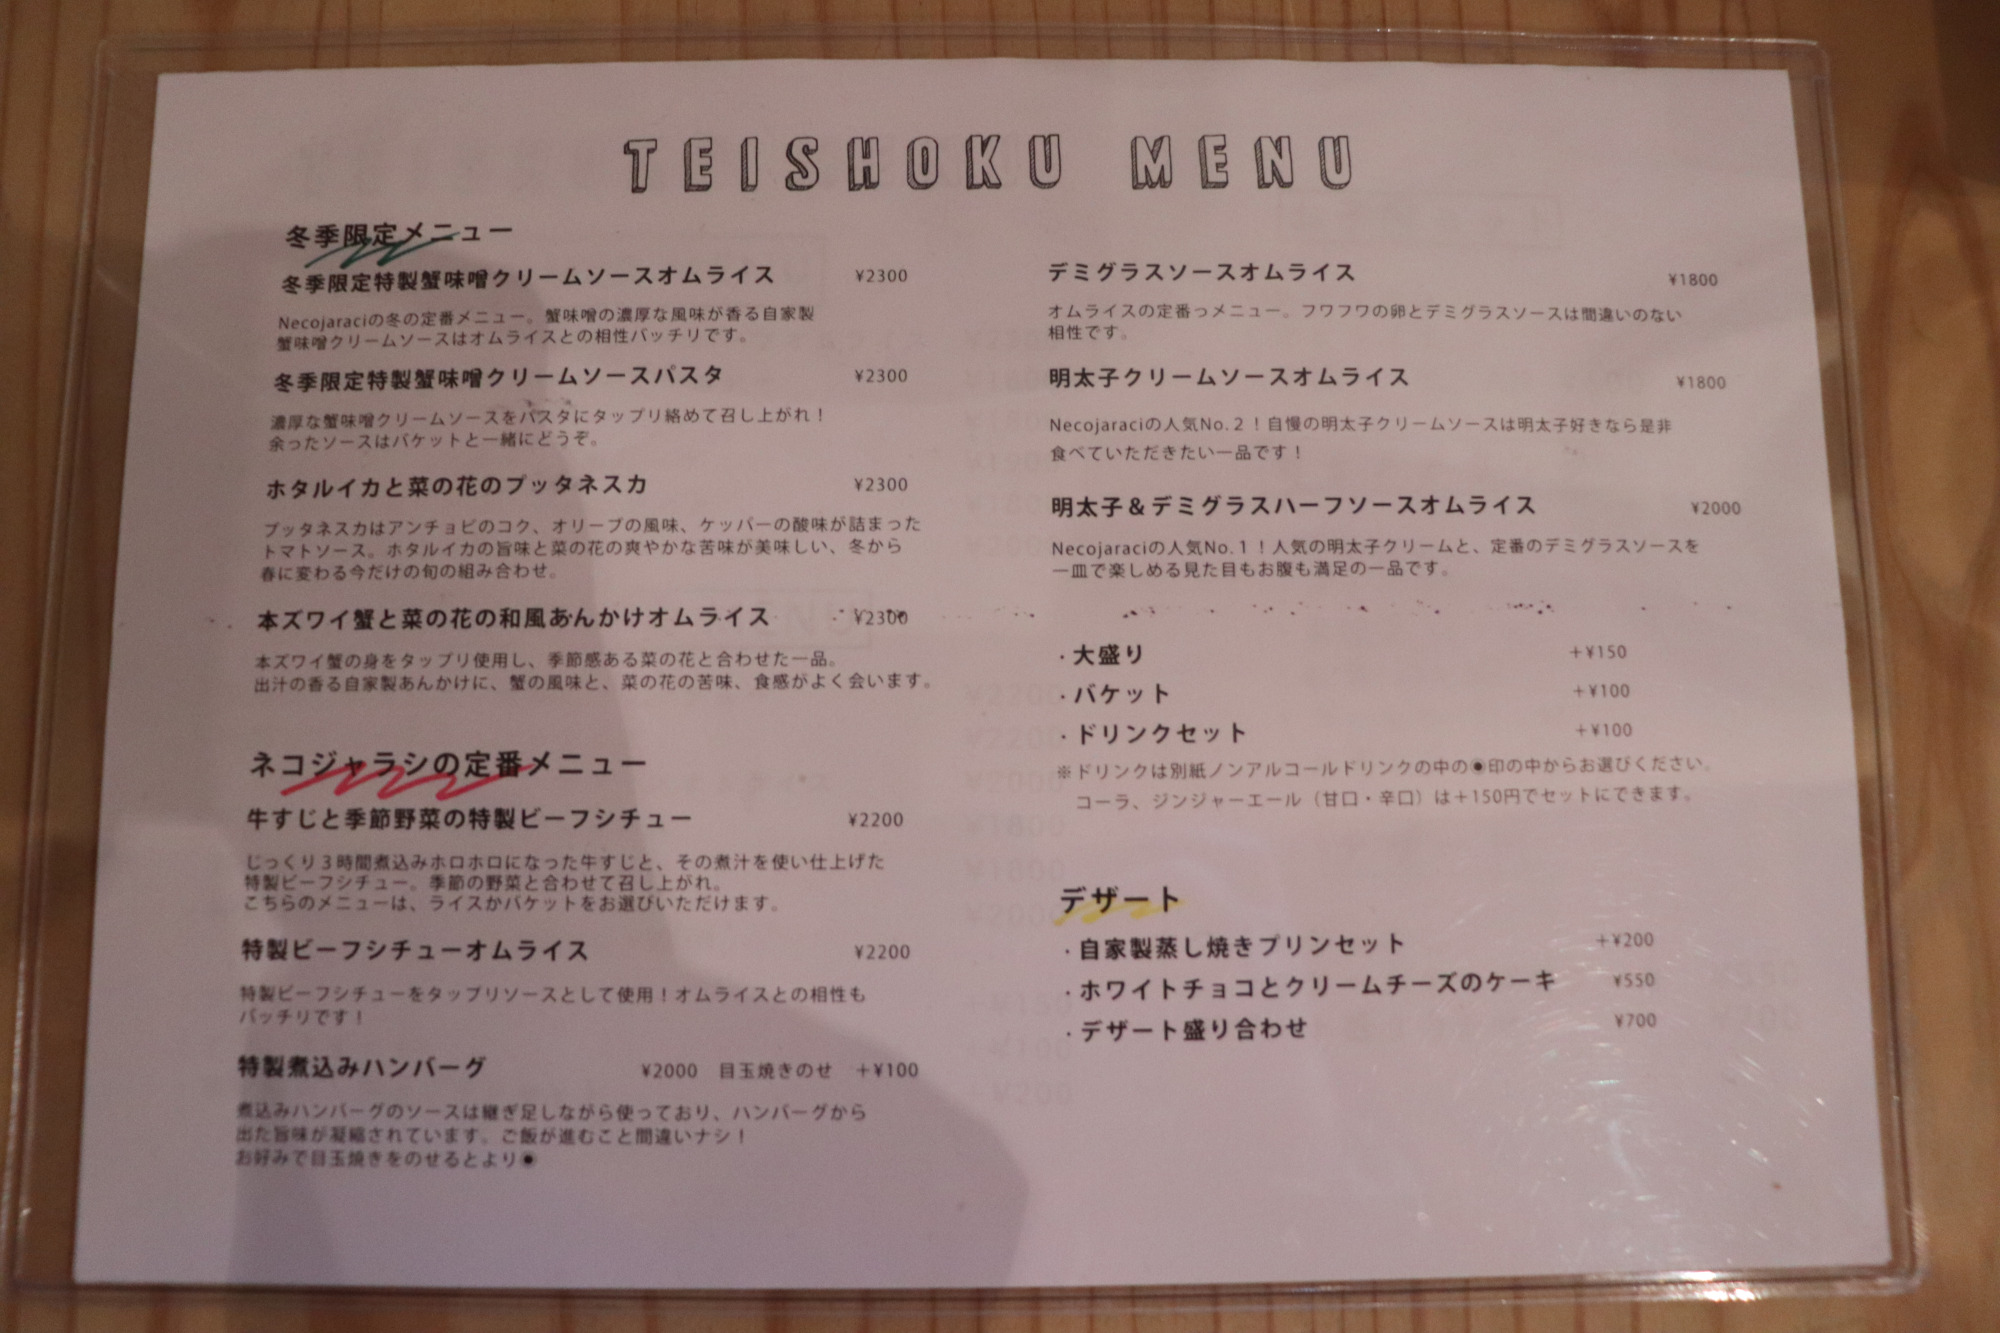 TEISHOKU MENU
冬季限定メニュー
冬季限定特製蟹味噌クリームソースオムライス ¥2300
Necojaraciの冬の定番メニュー。蟹味噌の濃厚な風味が香る自家製
蟹味噌クリームソースはオムライスとの相性バッチリです。
冬季限定特製蟹味噌クリームソースパスタ ¥2300
濃厚な蟹味噌クリームソースをパスタにタップリ絡めて召し上がれ！
余ったソースはバケットと一緒にどうぞ。
ホタルイカと菜の花のプッタネスカ ¥2300
プッタネスカはアンチョビのコク、オリーブの風味、ケッパーの酸味が詰まった
トマトソース。ホタルイカの旨味と菜の花の爽やかな苦味が美味しい、冬から
春に変わる今だけの旬の組み合わせ。
本ズワイ蟹と菜の花の和風あんかけオムライス ¥2300
本ズワイ蟹の身をタップリ使用し、季節感ある菜の花と合わせた一品。
出汁の香る自家製あんかけに、蟹の風味と、菜の花の苦味、食感がよく会います。
ネコジャラシの定番メニュー
牛すじと季節野菜の特製ビーフシチュー ¥2200
じっくり３時間煮込みホロホロになった牛すじと、その煮汁を使い仕上げた
特製ビーフシチュー。季節の野菜と合わせて召し上がれ。
こちらのメニューは、ライスかバケットをお選びいただけます。
特製ビーフシチューオムライス ¥2200
特製ビーフシチューをタップリソースとして使用！オムライスとの相性も
バッチリです！
特製煮込みハンバーグ ¥2000 目玉焼きのせ ＋¥100
煮込みハンバーグのソースは継ぎ足しながら使っており、ハンバーグから
出た旨味が凝縮されています。ご飯が進むこと間違いナシ！
お好みで目玉焼きをのせるとより◉
デミグラスソースオムライス ¥1800
オムライスの定番っメニュー。フワフワの卵とデミグラスソースは間違いのない
相性です。
明太子クリームソースオムライス ¥1800
Necojaraciの人気No.２！自慢の明太子クリームソースは明太子好きなら是非
食べていただきたい一品です！
明太子＆デミグラスハーフソースオムライス ¥2000
Necojaraciの人気No.１！人気の明太子クリームと、定番のデミグラスソースを
一皿で楽しめる見た目もお腹も満足の一品です。
・大盛り ＋¥150
・バケット ＋¥100
・ドリンクセット ＋¥100
※ドリンクは別紙ノンアルコールドリンクの中の◉印の中からお選びください。
コーラ、ジンジャーエール（甘口・辛口）は＋150円でセットにできます。
デザート
・自家製蒸し焼きプリンセット ＋¥200
・ホワイトチョコとクリームチーズのケーキ ¥550
・デザート盛り合わせ ¥700